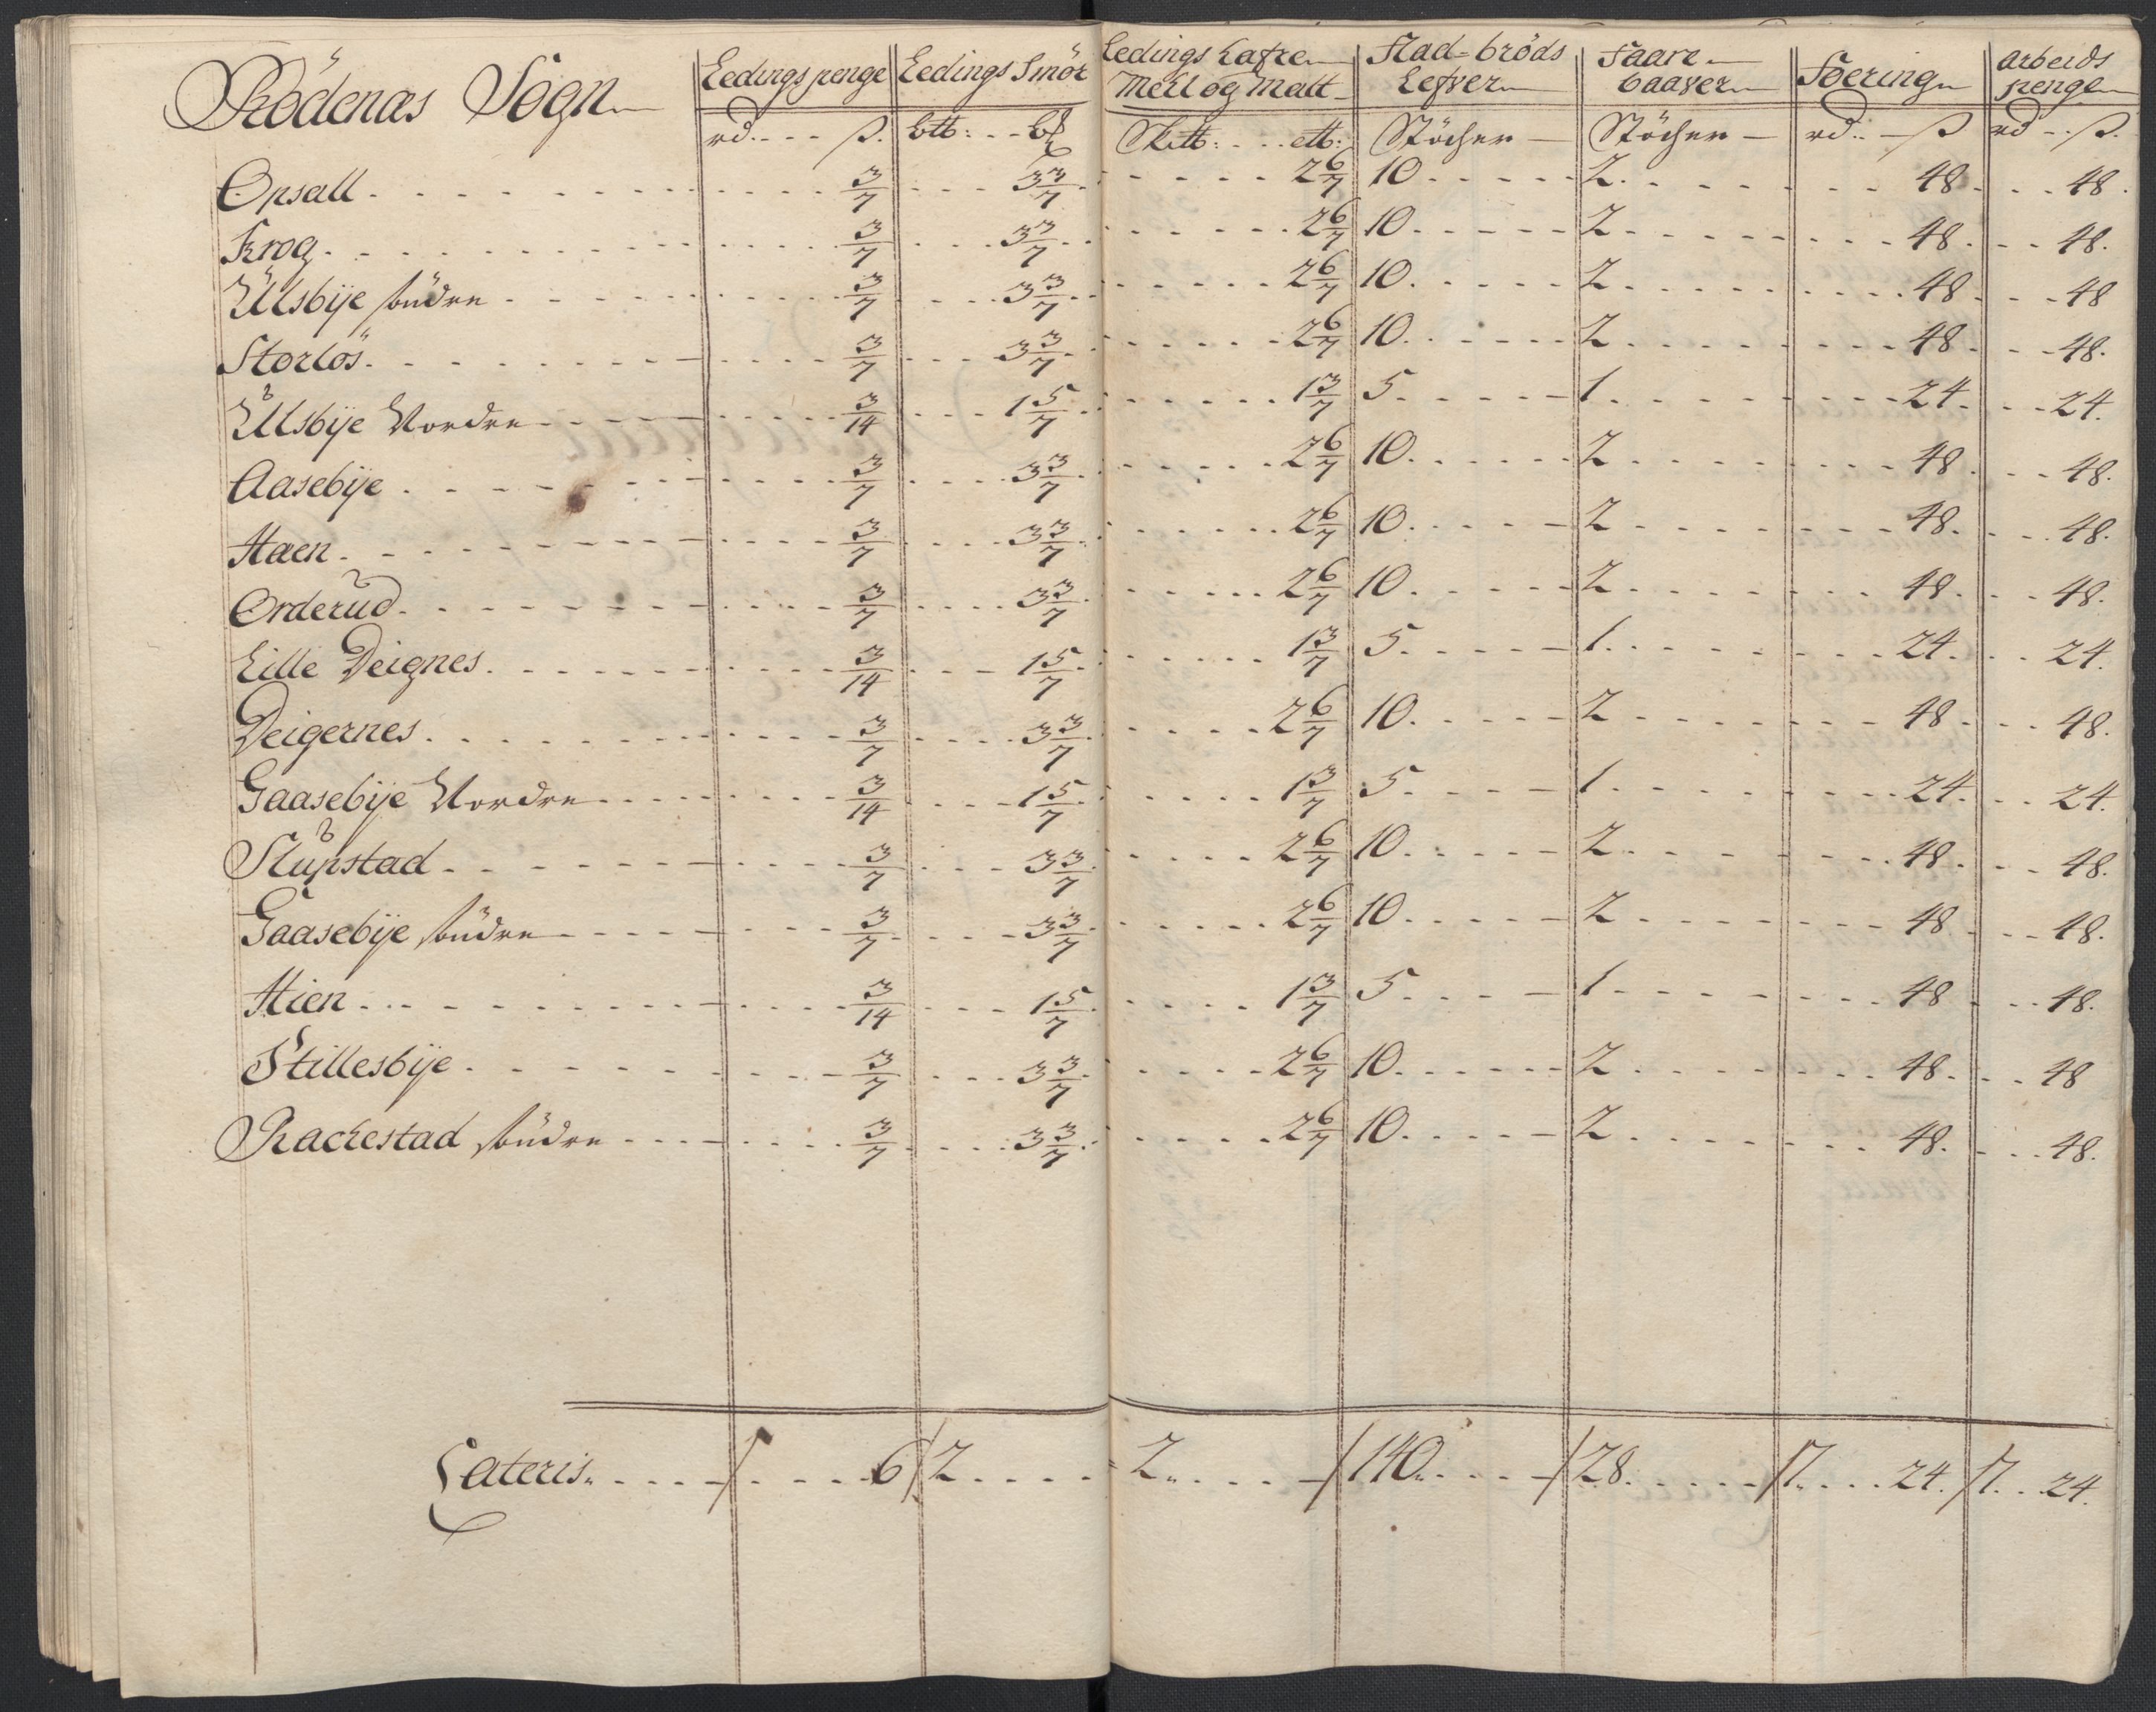 Rödenæs Sogn
Ledings penge | Ledings Smör | Ledings Hafre Mehl og Malt | Flad-bröds Lefver | Faare baager | Foering | arbeids penge
rd. ß. | btt: | Skttb: | Stöcher | Stöcher | rd: ß | rd ß.
Opsall 3/7 | 3 3/7 | 2 6/7 | 10 | 2 | 48 | 48
Krog 3/7 | 3 3/7 | 2 6/7 | 10 | 2 | 48 | 48.
Ulsbÿe söndre 3/7 | 3 3/7 | 2 6/7 | 10 | 2 | 48 | 48
Storlös 3/7 | 3 3/7 | 2 6/7 | 10 | 2 | 48 | 48.
Ulsbÿe Nordre 3/14 | 1 5/7 | 1 3/7 | 5 | 1 | 24 | 24.
Aasebÿe 3/7 | 3 3/7 | 2 6/7 | 10 | 2 | 48 | 48.
Haen 3/7 | 3 3/7 | 2 6/7 | 10 | 2 | 48 | 48.
Orderud 3/7 | 3 3/7 | 2 6/7 | 10 | 2 | 48 | 48.
Lille Deignes 3/14 | 1 5/7 | 1 3/7 | 5 | 1 | 24 | 24.
Deigernes 3/7 | 3 3/7 | 2 6/7 | 10 | 2 | 48 | 48.
Gaasebÿe Nordre 3/14 | 1 5/7 | 1 3/7 | 5 | 1 | 24 | 24.
Slupstad 3/7 | 3 3/7 | 2 6/7 | 10 | 2 | 48 | 48.
Gaasebÿe söndre 3/7 | 3 3/7 | 2 6/7 | 10 | 2 | 48 | 48.
Hien 3/14 | 1 5/7 | 1 3/7 | 5 | 1 | 48 | 48.
Stillesbÿe 3/7 | 3 3/7 | 2 6/7 | 10 | 2 | 48 | 48
Rachestad söndre 3/7 | 3 3/7 | 2 6/7 | 10 | 2 | 48. | 48.
Lateris 6 | 2 | 2 | 140 | 28 | 7 24. | 7 24.